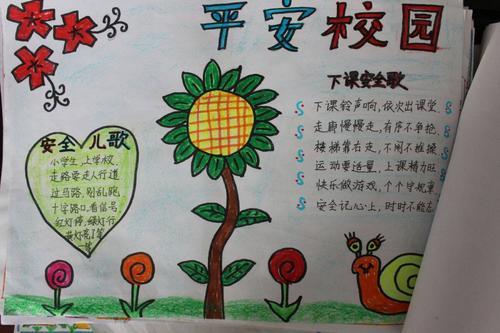 平安校园
下课安全歌
下课铃声响，依次出课堂.
走廊慢慢走，有序不单艳.
楼梯靠右走，不闹不推搡
运动要适量，上课精力旺
快乐做游戏，个个守规章
安全记心上，时时不能忘
安全儿歌
小学生，上学校
走路要走人行道
过马路，别乱跑
十字路口，看信号
红灯停，绿灯行
黄灯亮了等
一等